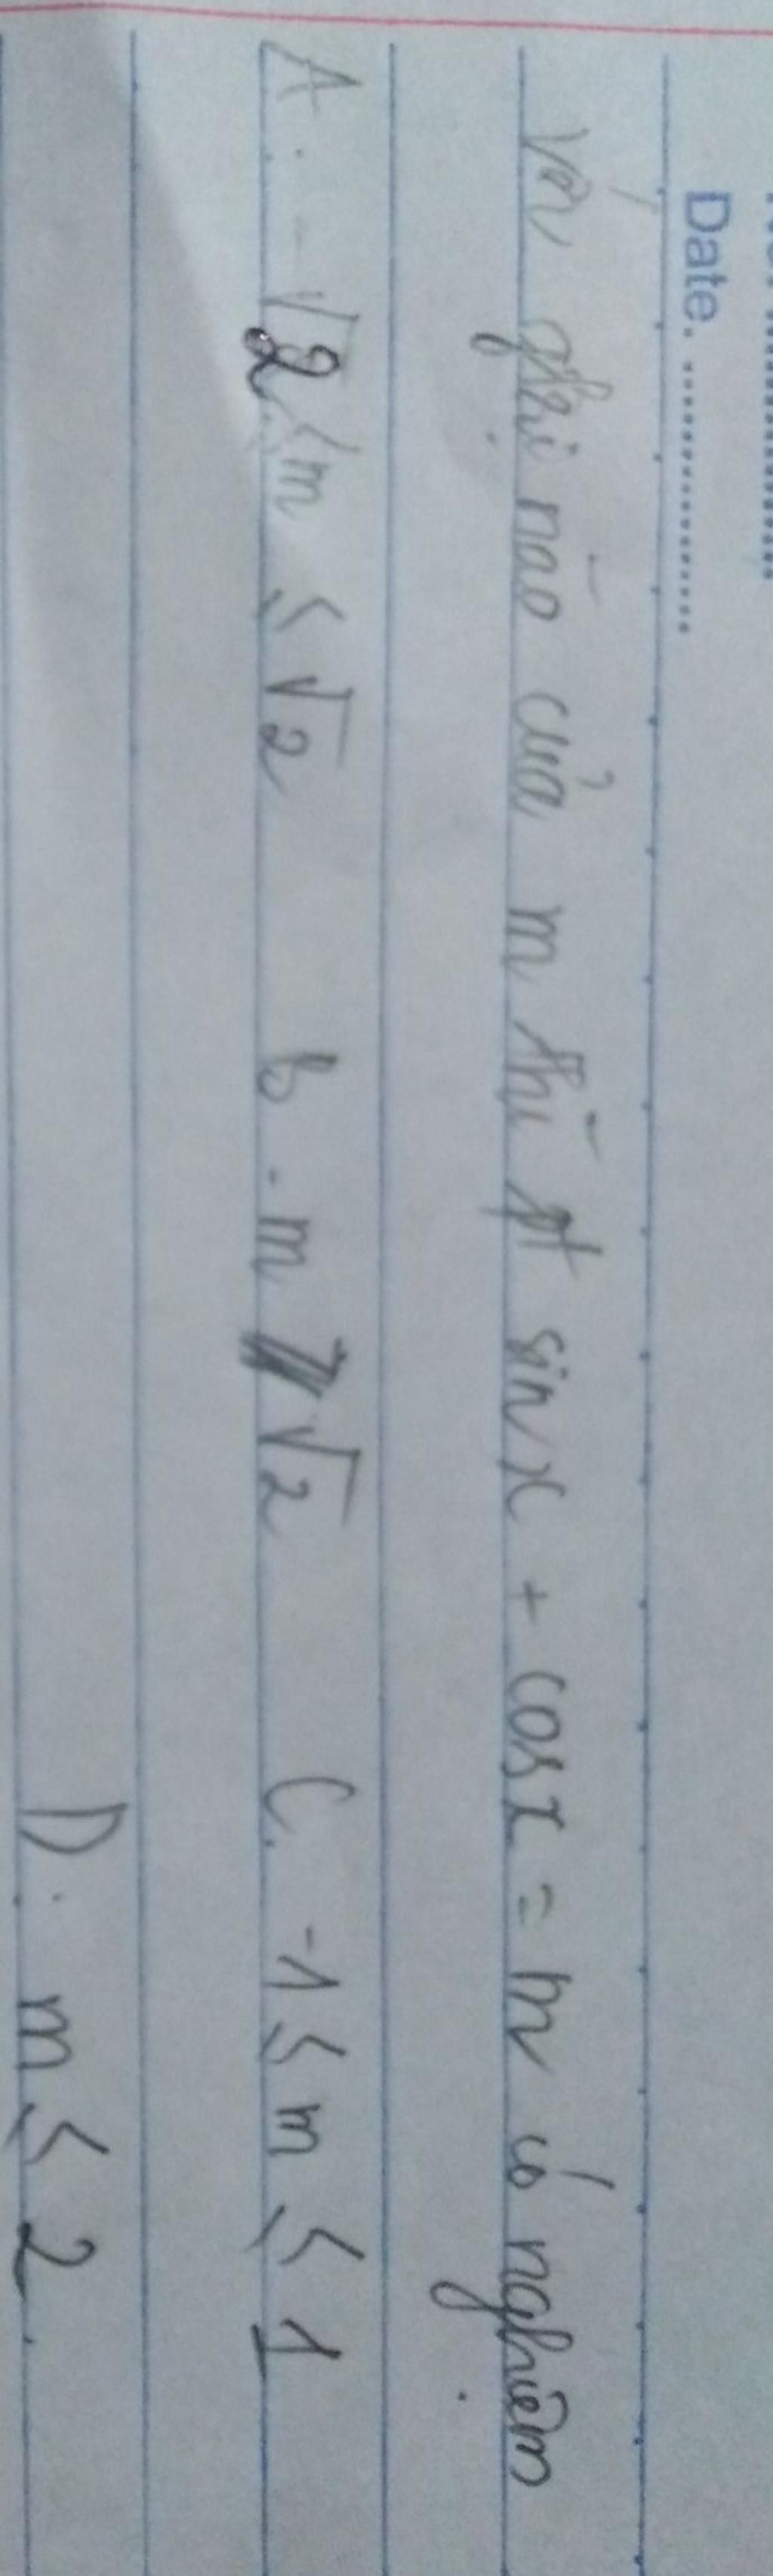 Date. ....................
Với ghị nào của m thì pt sin x + cos x = m có nghiệm
A. -√2 ≤ m ≤ √2 b. m ≥ √2 C. -1 ≤ m ≤ 1
D. m ≤ 2.